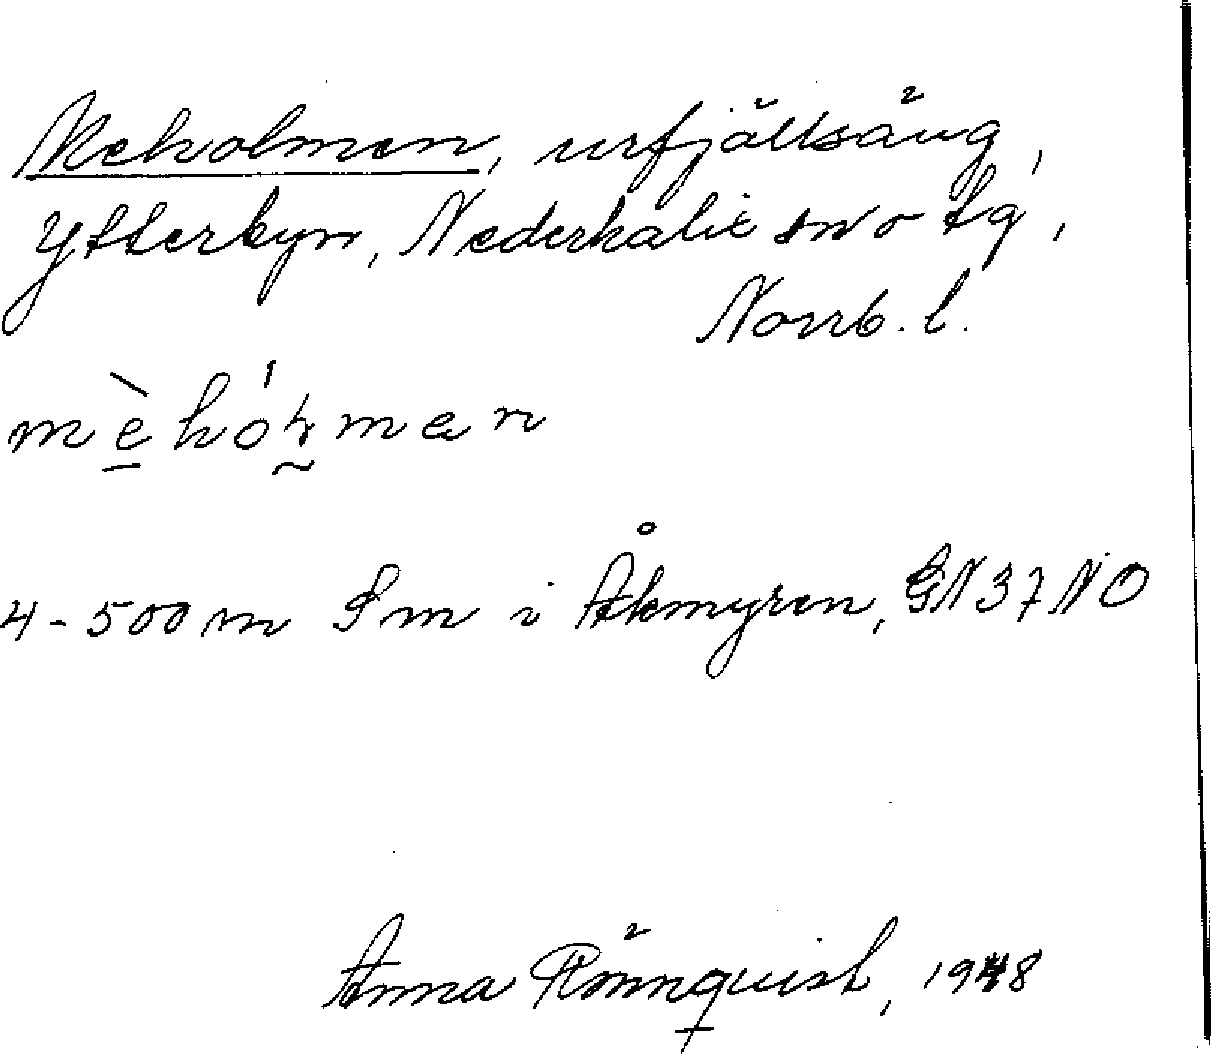 Meholmen, urfjällsäng,
Ytterbyn, Nederkalix sn o tg,
Norrb. l.
4-500 m S m i Åkmyren, GN37NO
Anna Rönnquist, 1948